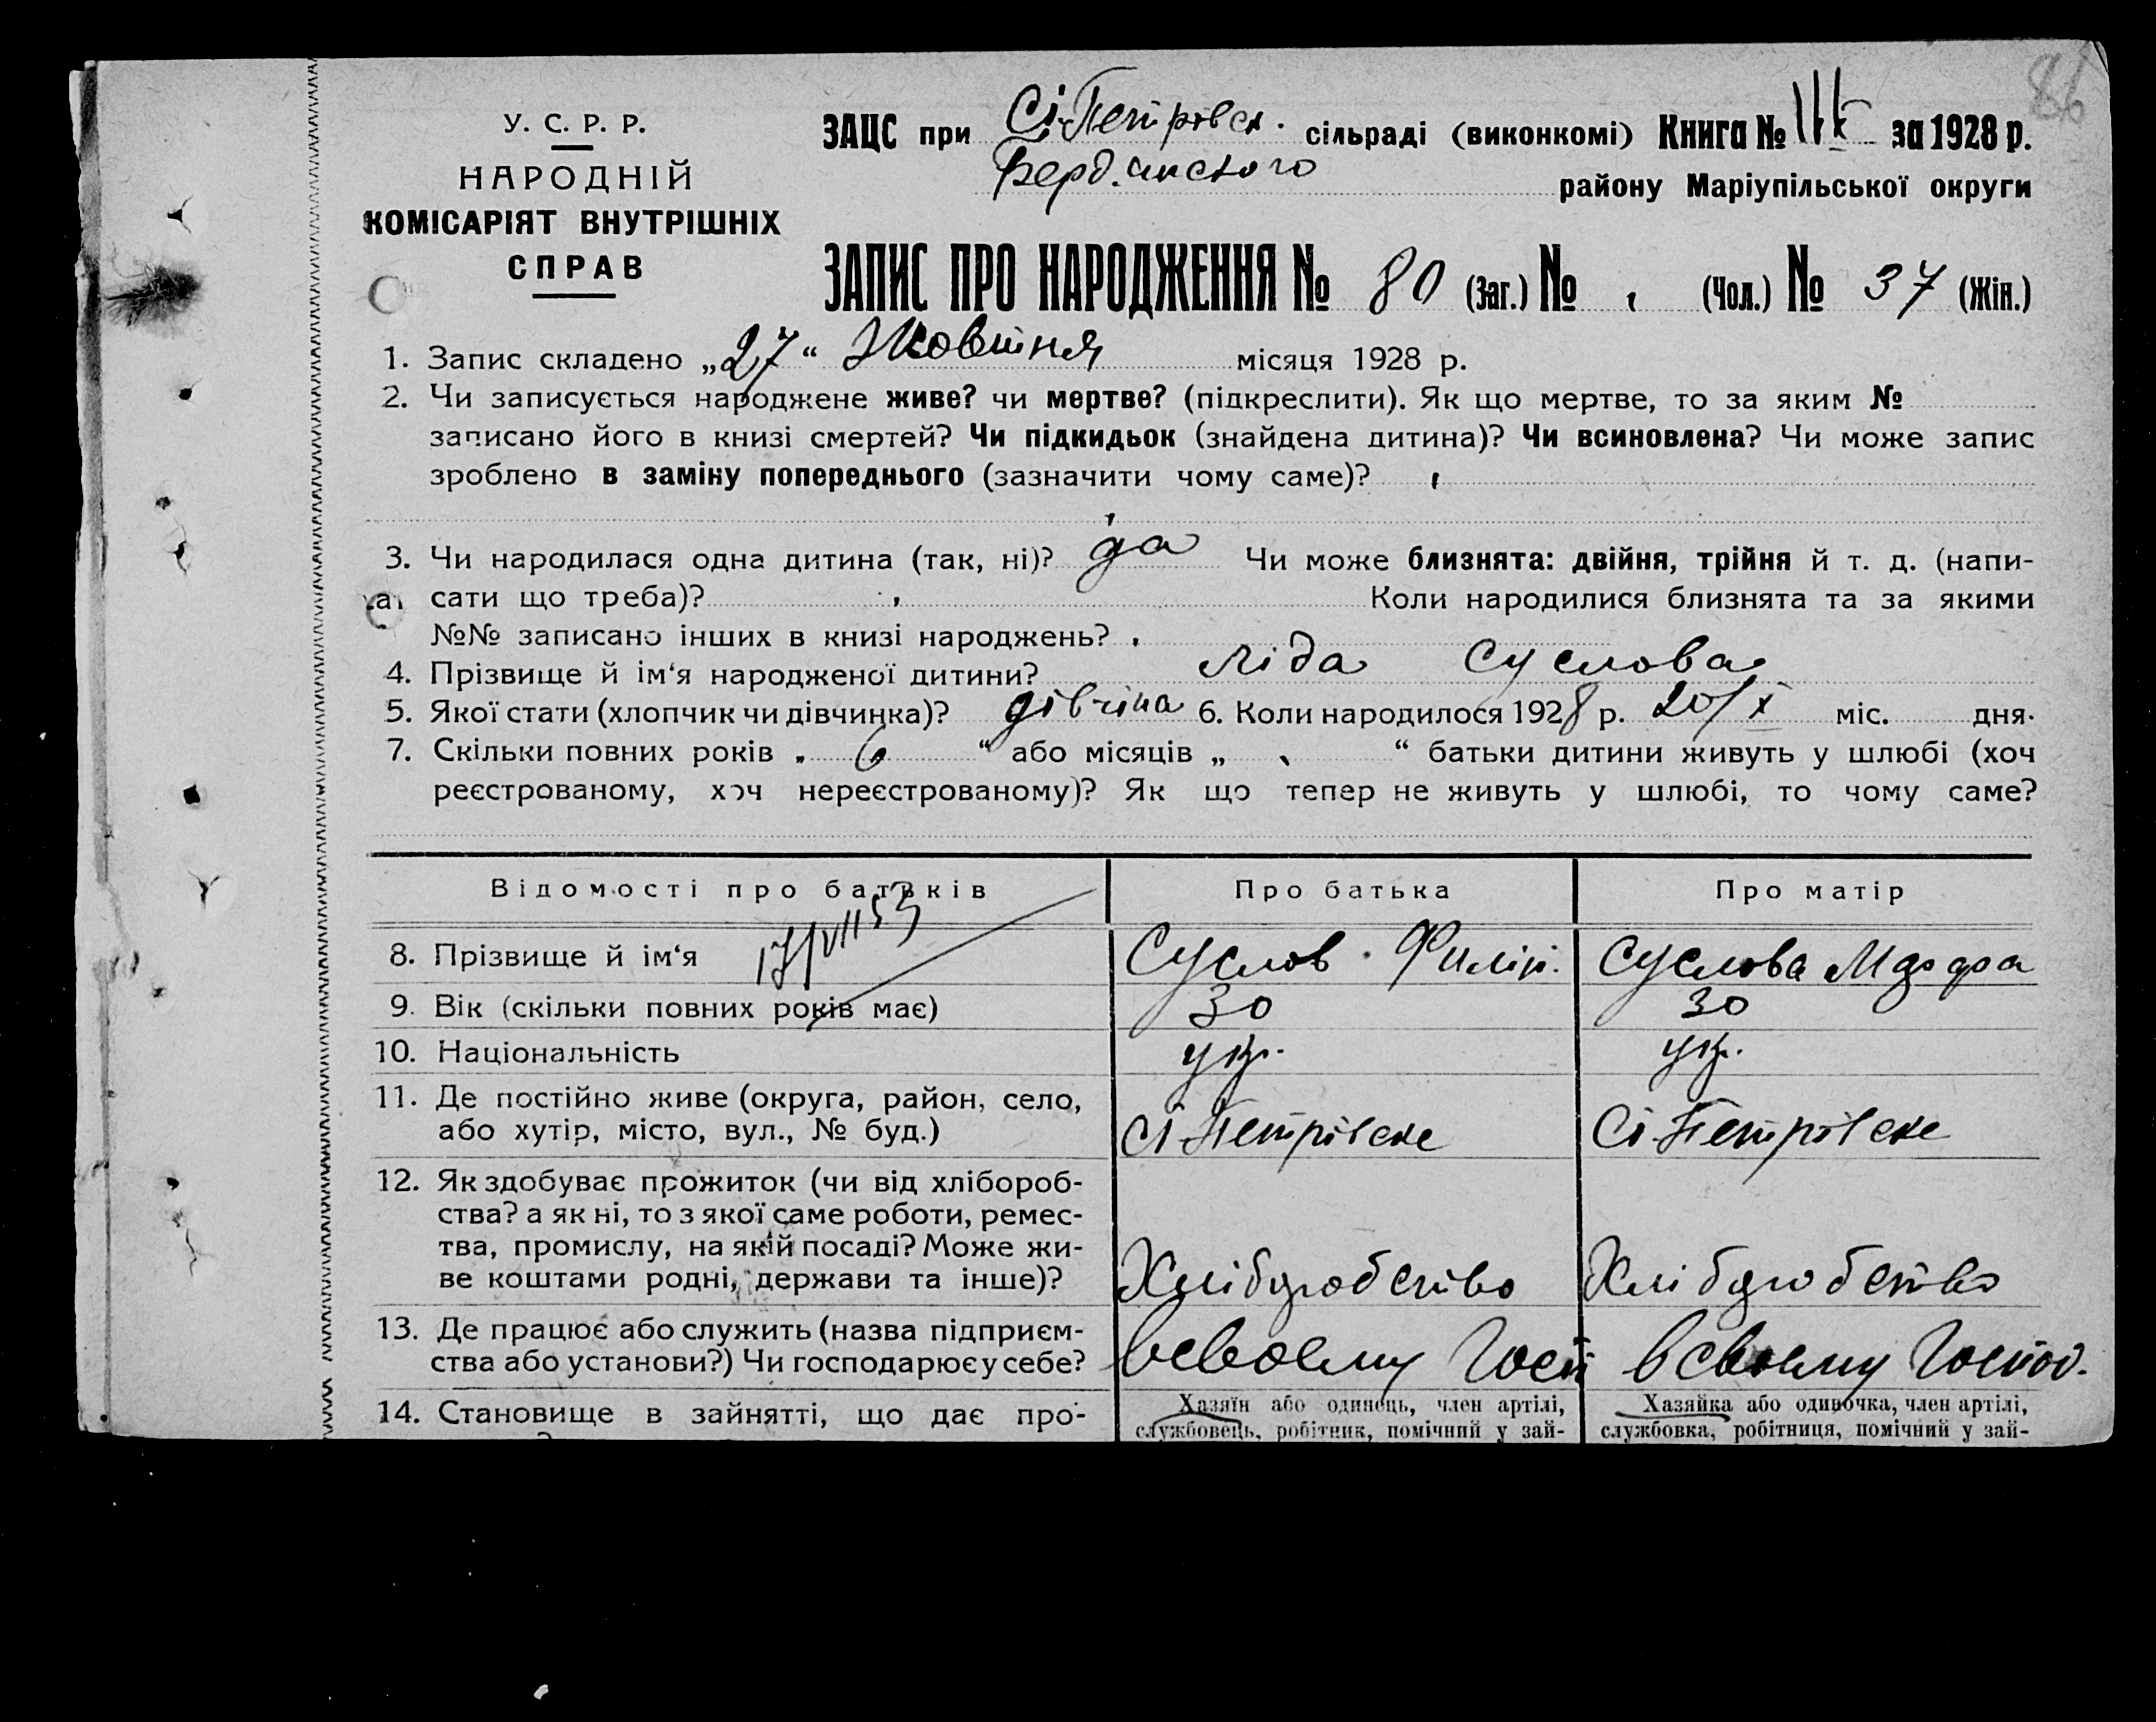 86
У. С. Р. Р.
НАРОДНІЙ
КОМІСАРІЯТ ВНУТРІШНІХ
СПРАВ
ЗАЦС при Сі-Петровск. сільраді (виконкомі) Книга № за 1928 р.
Берд.нського району Маріупільської округи
ЗАПИС ПРО НАРОДЖЕННЯ № 80 (Заг.) № (Чол.) № 37 (Жін.)
1. Запис складено „27“ Жовтня місяця 1928 р.
2. Чи записується народжене живе? чи мертве? (підкреслити). Як що мертве, то за яким №
записано його в книзі смертей? Чи підкидьок (знайдена дитина)? Чи всиновлена? Чи може запис
зроблено в заміну попереднього (зазначити чому саме)?
3. Чи народилася одна дитина (так, ні)? да Чи може близнята: двійня, трійня й т. д. (напи-
сати що треба)? Коли народилися близнята та за якими
№№ записано інших в книзі народжень?
4. Прізвище й ім‘я народженої дитини? Ліда Суслова
5. Якої стати (хлопчик чи дівчинка)? дівчина 6. Коли народилося 1928 р. 20/X міс. дня.
7. Скільки повних років „ 6 “ або місяців „ “ батьки дитини живуть у шлюбі (хоч
реєстрованому, хоч нереєстрованому)? Як що тепер не живуть у шлюбі, то чому саме?
Відомості про батьків Про батька Про матір
17/VII 53
8. Прізвище й ім‘я Суслов Филіп. Суслова
9. Вік (скільки повних років має) 30 30
10. Національність укр. укр.
11. Де постійно живе (округа, район, село,
або хутір, місто, вул., № буд.) Сі-Петрівске Сі-Петрівске
12. Як здобуває прожиток (чи від хлібороб-
ства? а як ні, то з якої саме роботи, ремес-
тва, промислу, на якій посаді? Може жи-
ве коштами родні, держави та інше)? Хліборобство Хліборобство
13. Де працює або служить (назва підприєм-
ства або установи?) Чи господарює у себе? в своему Госп в своему Господ.
14. Становище в зайнятті, що дає про- Хазяїн або одинець, член артілі, Хазяйка або одиночка, член артілі,
службовець, робітник, помічний у зай- службовка, робітниця, помічний у зай-